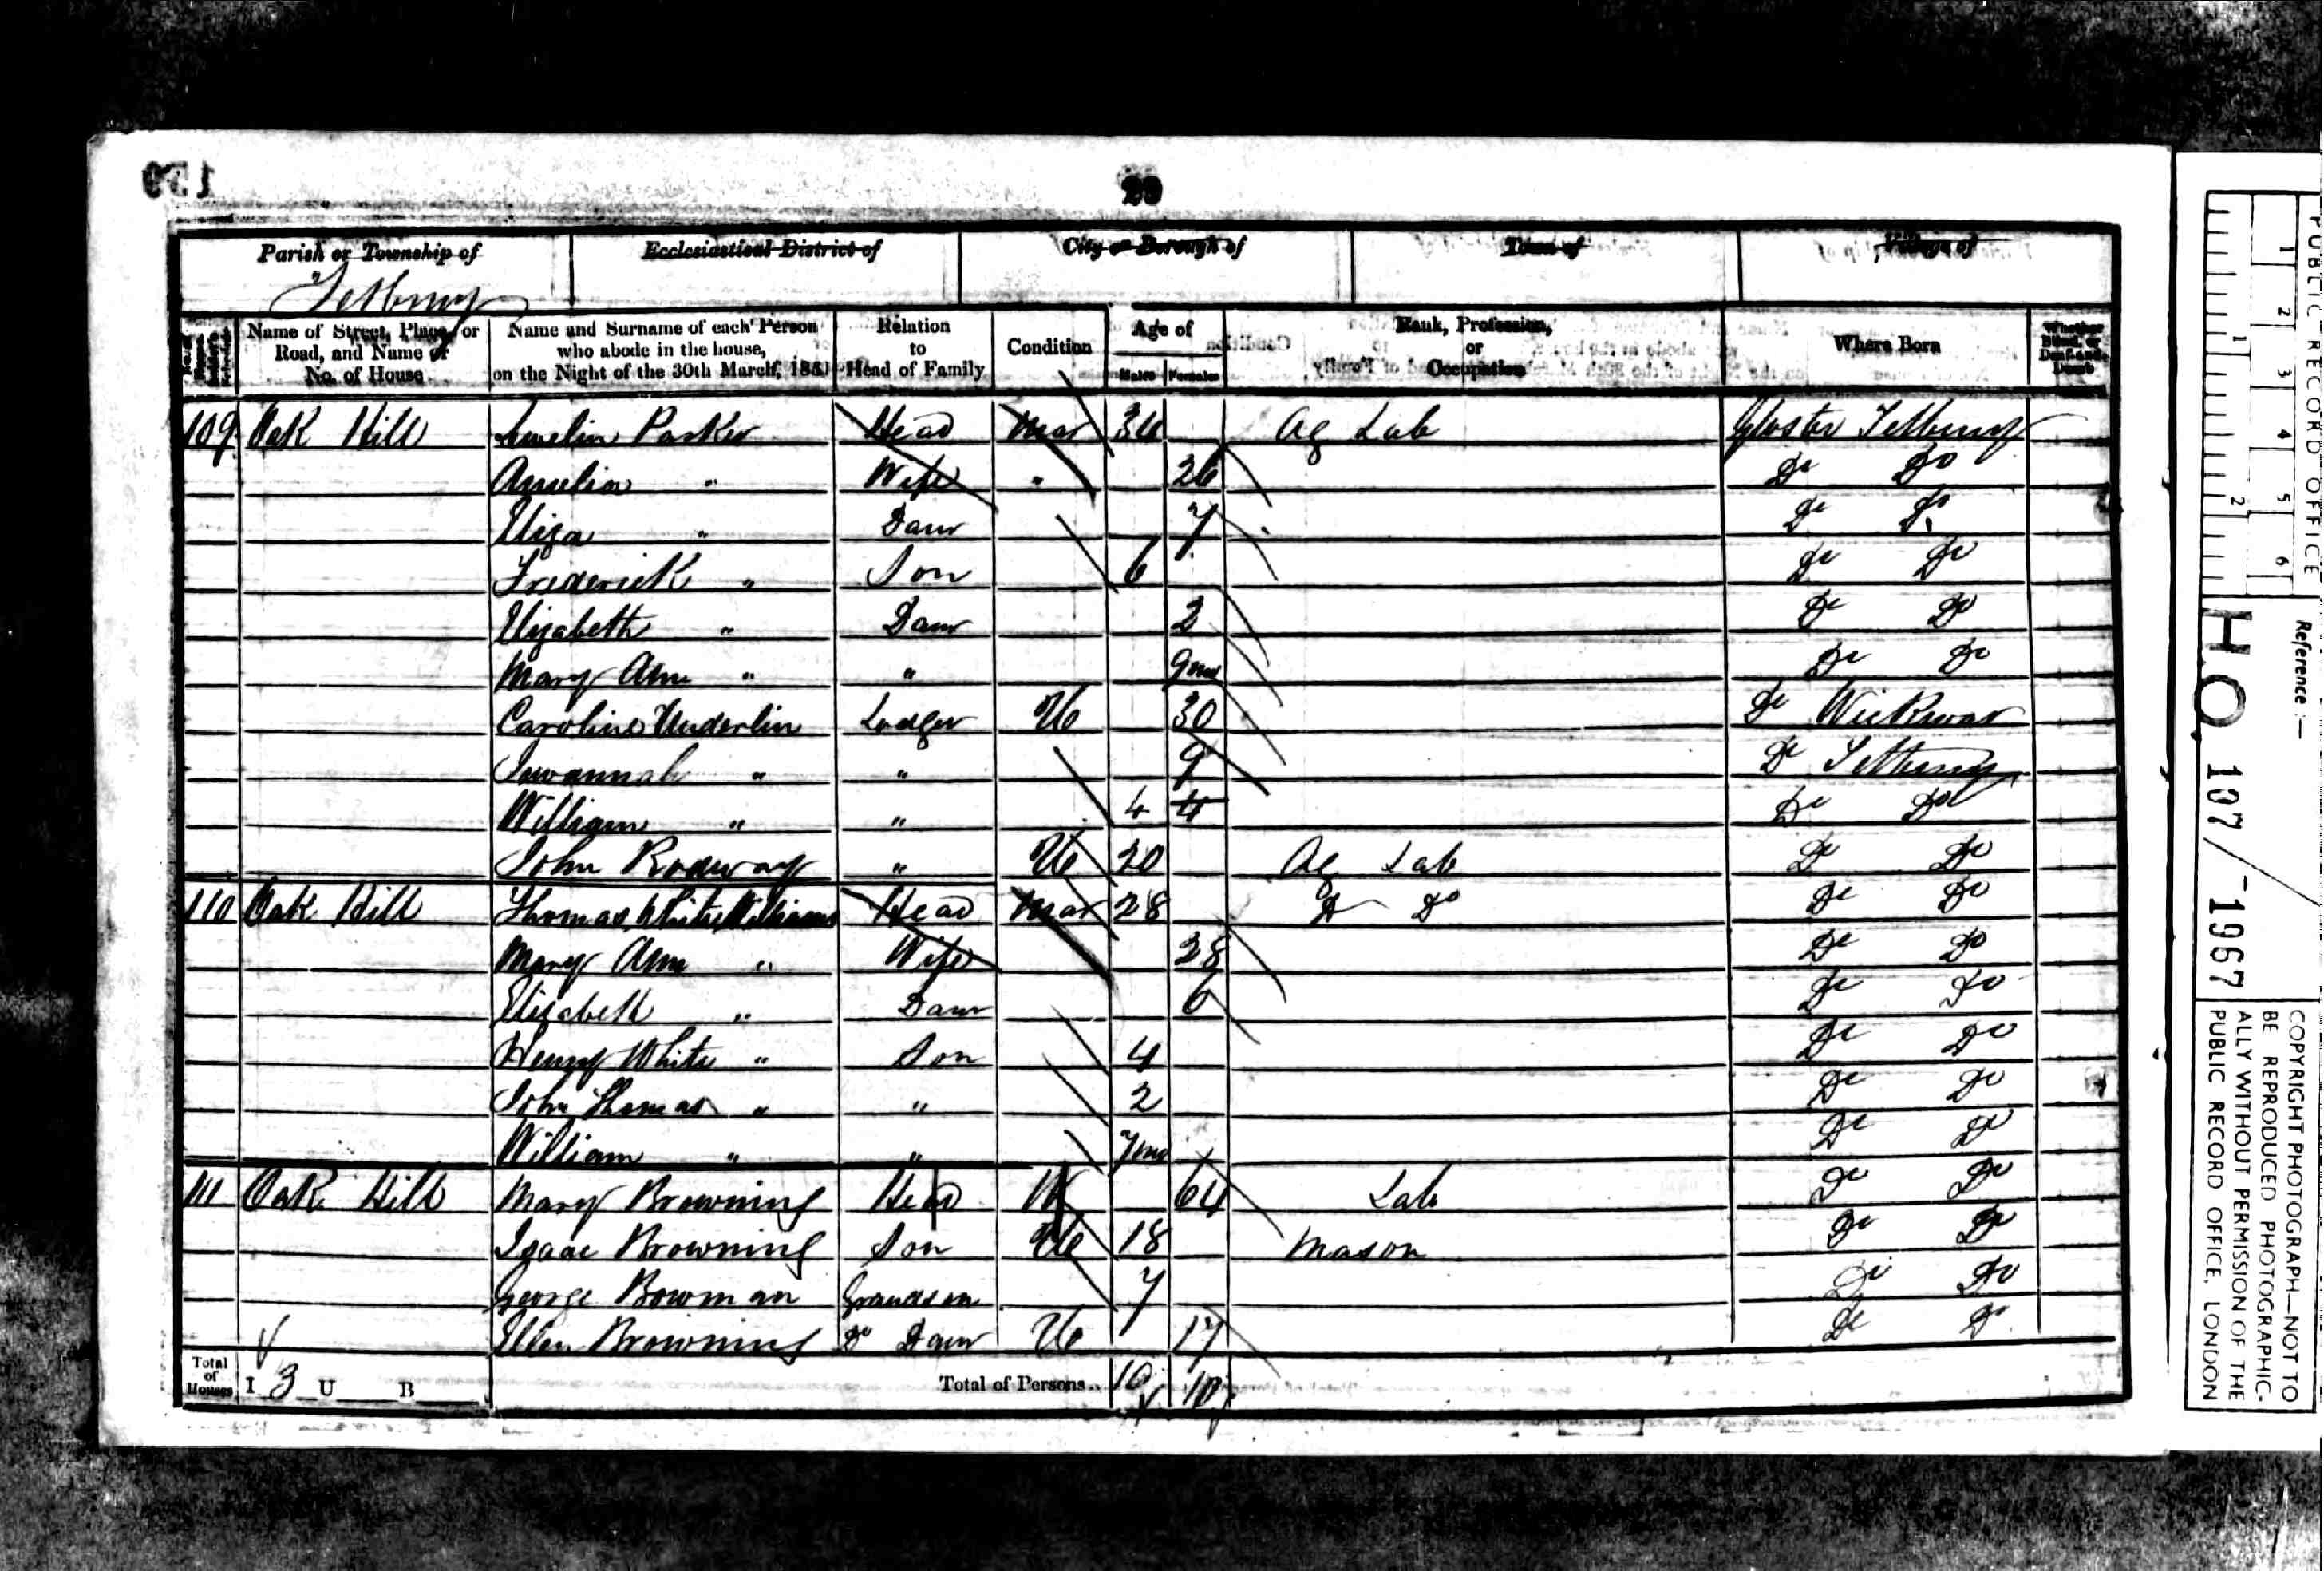 29
Parish or Township of Ecclesiastical District of City or Borough of Town of Village of
Tetbury
Name of Street, Place, or Road, and Name or No. of House
Name and Surname of each Person who abode in the house, on the Night of the 30th March, 1851
Relation to Head of Family
Condition
Age of
Males Females
Rank, Profession, or Occupation
Where Born
Whether Blind, or Deaf-and-Dumb
109 Oak Hill Parker Head Mar 34 Ag Lab Gloster Tetbury
Amelia " Wife " 26 Do Do
Eliza " Daur 7 Do Do
Frederick " Son 6 Do Do
Elizabeth " Daur 2 Do Do
Mary Ann " " 9 mo Do Do
Caroline Underlin Lodger U 30 Do Wickwar
Suwannah " " 9 Do Tetbury
William " " 4 4 Do Do
John Rodway " U 20 Ag Lab Do Do
110 Oak Hill Thomas White Williams Head Mar 28 Do Do Do Do
Mary Ann " Wife 28 Do Do
Elizabeth " Daur 6 Do Do
Henry White " Son 4 Do Do
John Thomas " " 2 Do Do
William " " 7 mo Do Do
111 Oak Hill Mary Browning Head W 64 Lab Do Do
Isaac Browning Son U 18 Mason Do Do
George Bowman Grandson 7 Do Do
Ellen Browning Do Daur U 17 Do Do
Total of Houses I 3 U B Total of Persons.. 10 10
PUBLIC RECORD OFFICE
1 2 3 4 5 6
1 2
Reference :—
H.O. 107/-1967
COPYRIGHT PHOTOGRAPH—NOT TO BE REPRODUCED PHOTOGRAPHIC-
ALLY WITHOUT PERMISSION OF THE PUBLIC RECORD OFFICE, LONDON